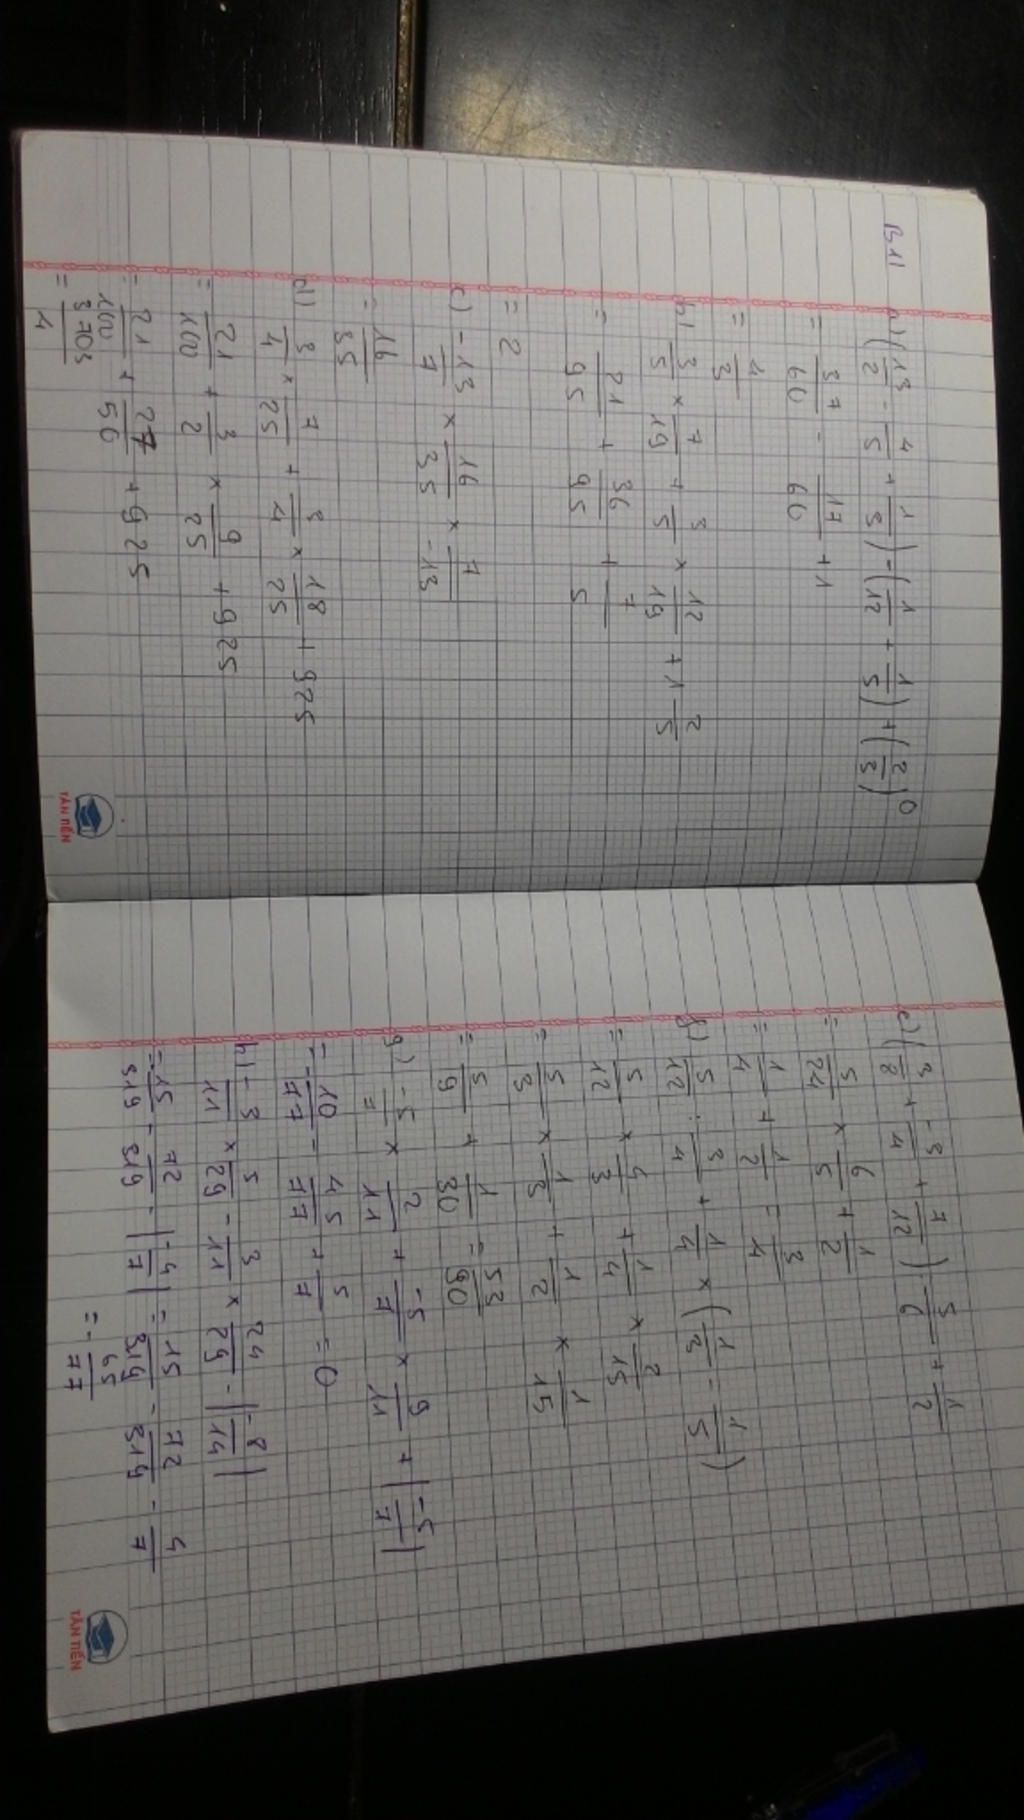 B1)
a) (13/2 - 4/5 + 1/3) - (1/12 + 1/5) + (2/3)^0
= 37/60 - 17/60 + 1
= 4/3
b) 3/5 × 7/19 + 3/5 × 12/19 + 1 2/5
= 21/95 + 36/95 + 7/5
= 2
c) -13/7 × 16/35 × 7/-13
= 16/35
d) 3/4 × 7/25 + 3/4 × 18/25 + 925
= 21/100 + 3/2 × 9/25 + 925
= 21/100 + 27/50 + 925
= 3703/4
TÂN TIẾN
e) (3/8 + -3/4 + 7/12) : 5/6 + 1/2
= 5/24 × 6/5 + 1/2
= 1/4 + 1/2 = 3/4
f) 5/12 : 3/4 + 1/4 × (1/3 - 1/5)
= 5/12 × 4/3 + 1/4 × 2/15
= 5/3 × 1/3 + 1/2 × 1/15
= 5/9 + 1/30 = 53/90
g) -5/7 × 2/11 + -5/7 × 9/11 + |-5/7|
= -10/77 - 45/77 + 5/7 = 0
h) -3/11 × 5/29 - 3/11 × 24/29 - |-8/14|
= -15/319 - 72/319 - |-4/7| = -15/319 - 72/319 - 4/7
= -65/77
TÂN TIẾN